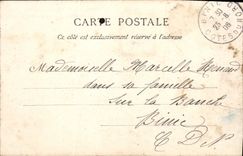 CARTE POSTALE
Ce côté est exclusivement réservé à l'adresse
Mademoiselle Marcelle
dans sa famille
sur la Banche
Binic
C D N